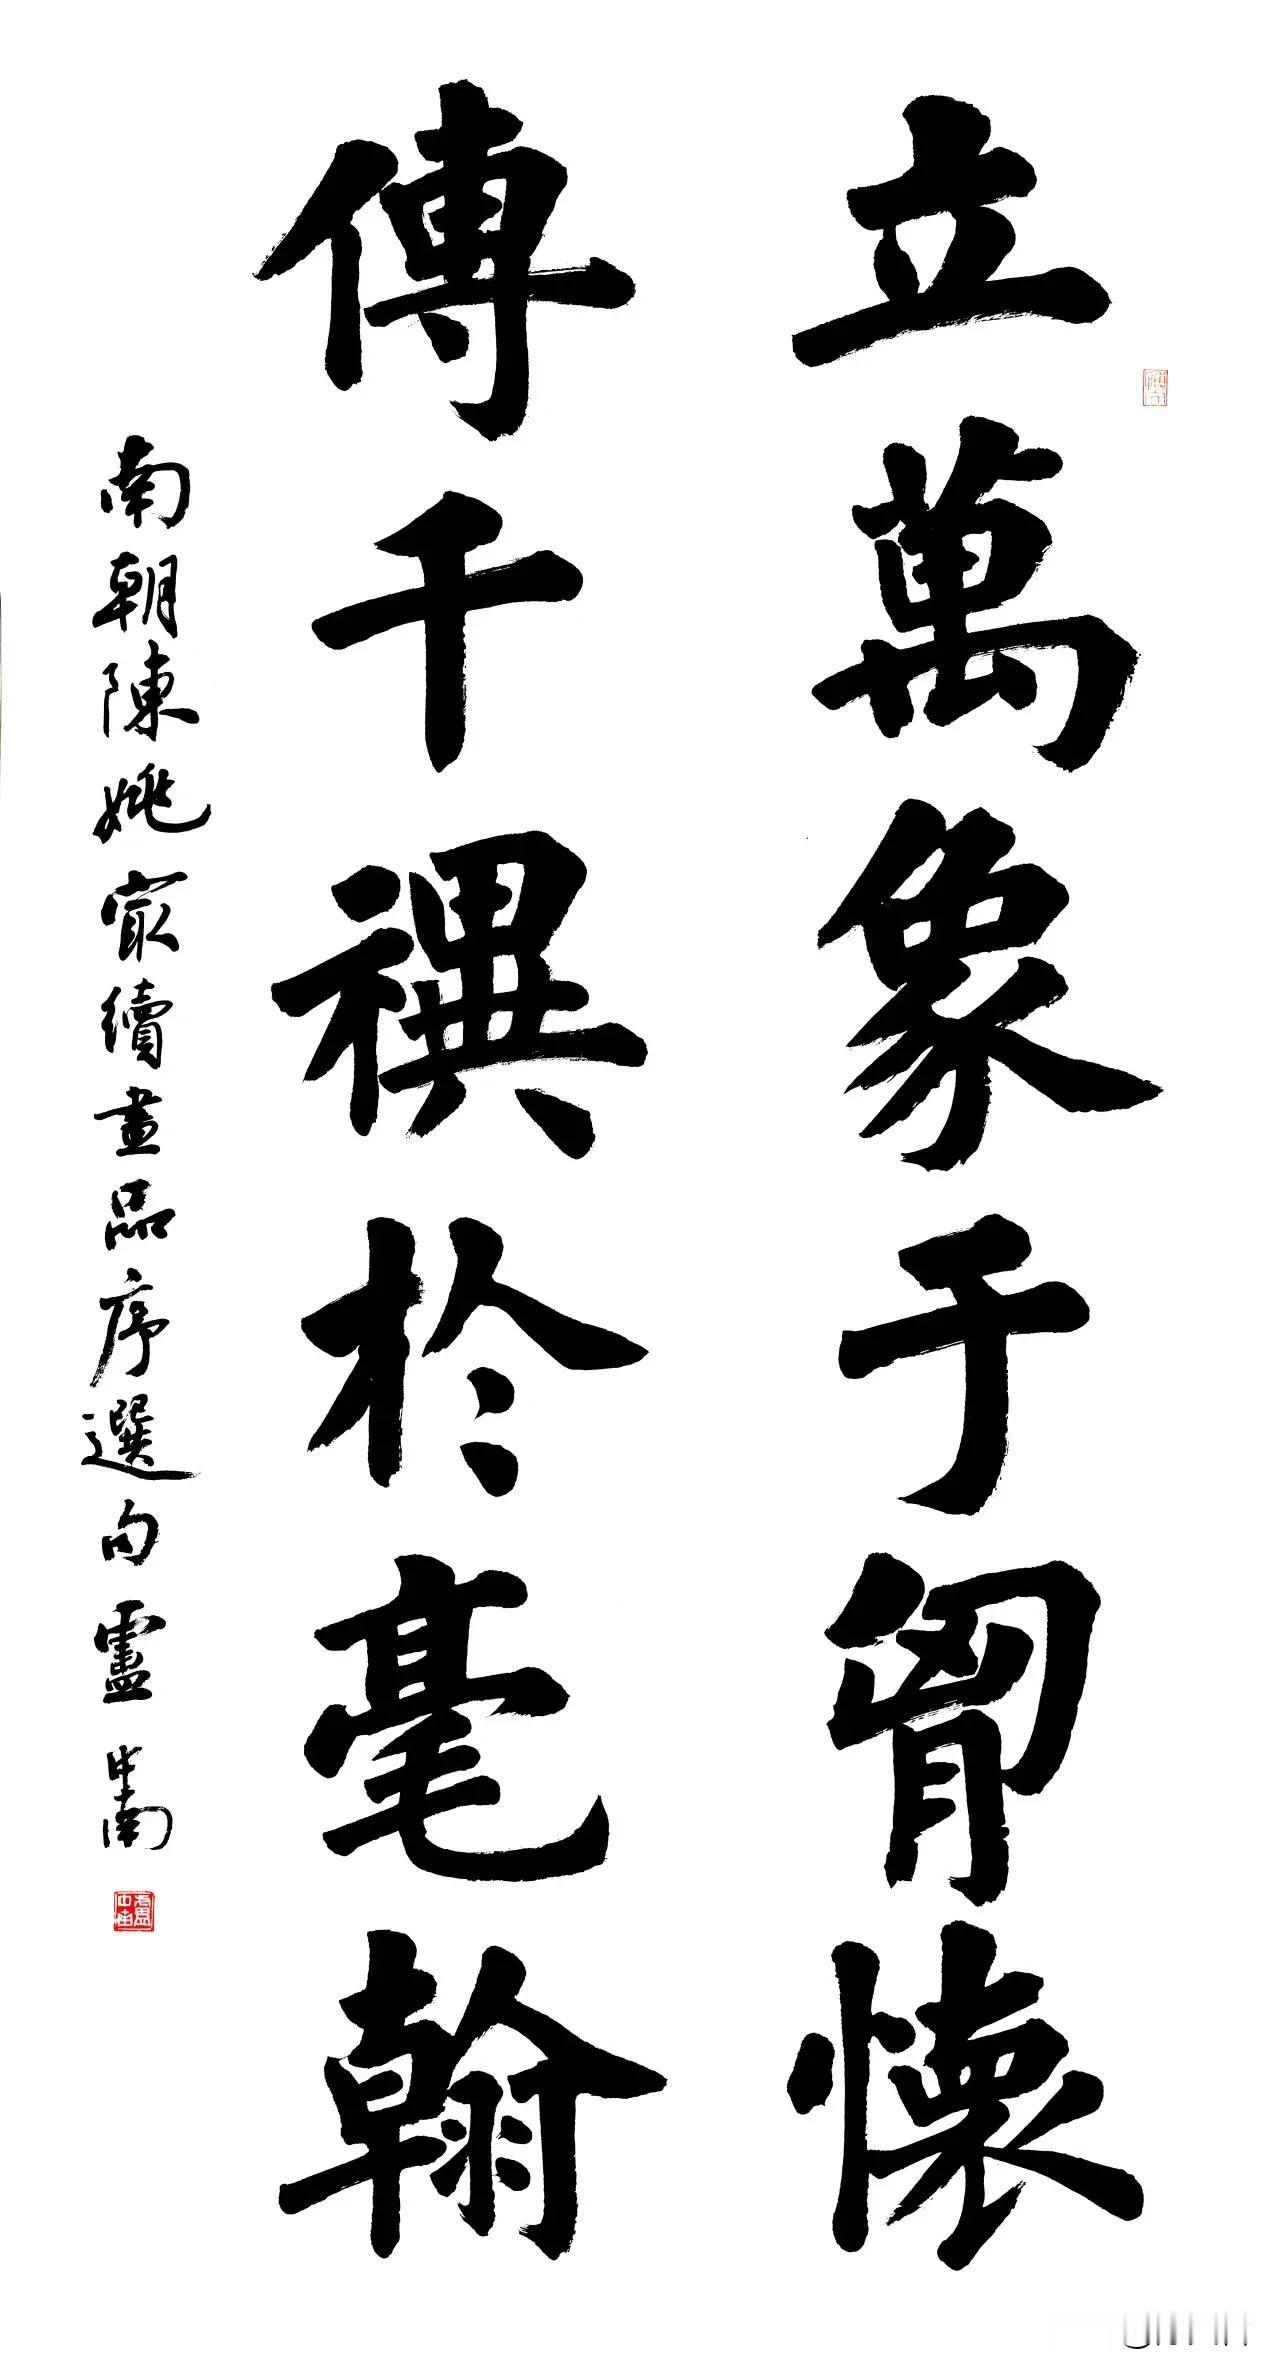 立萬象于胷懷
傳千禩於毫翰
南朝陳姚㝡續畫品序選句盧中南